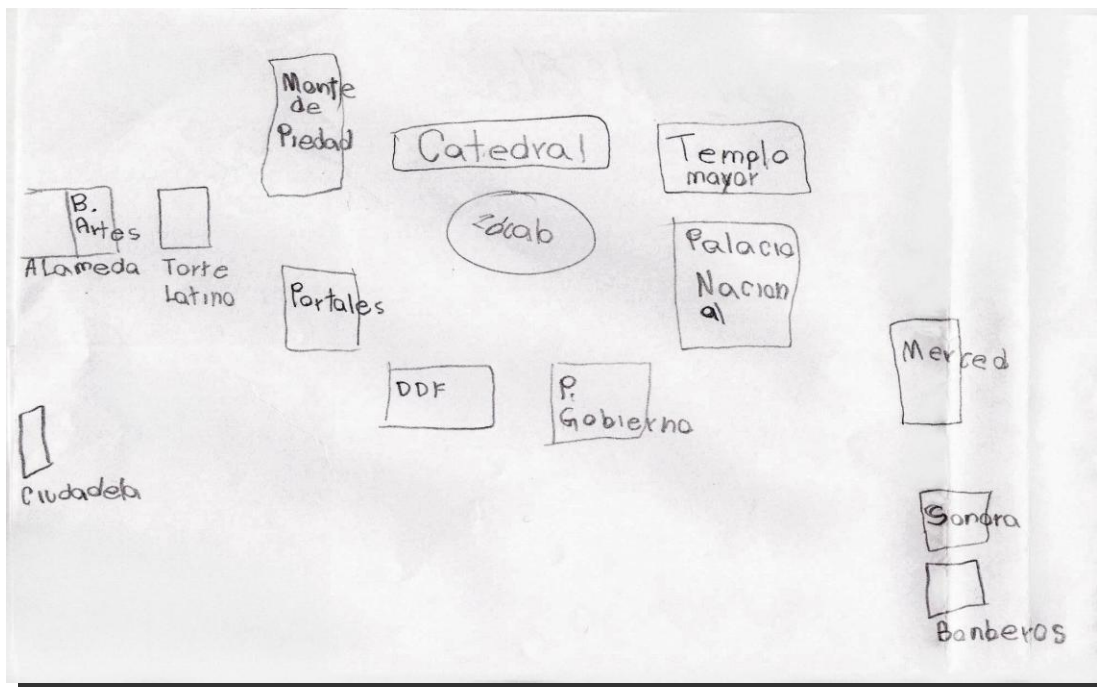 Monte
de
Piedad
Catedral
Templo
mayor
B.
Artes
ALameda
Torre
Latino
Zócalo
Palacio
Nacion
al
Portales
Merced
DDF
P.
Gobierno
Ciudadela
Sonora
Bomberos